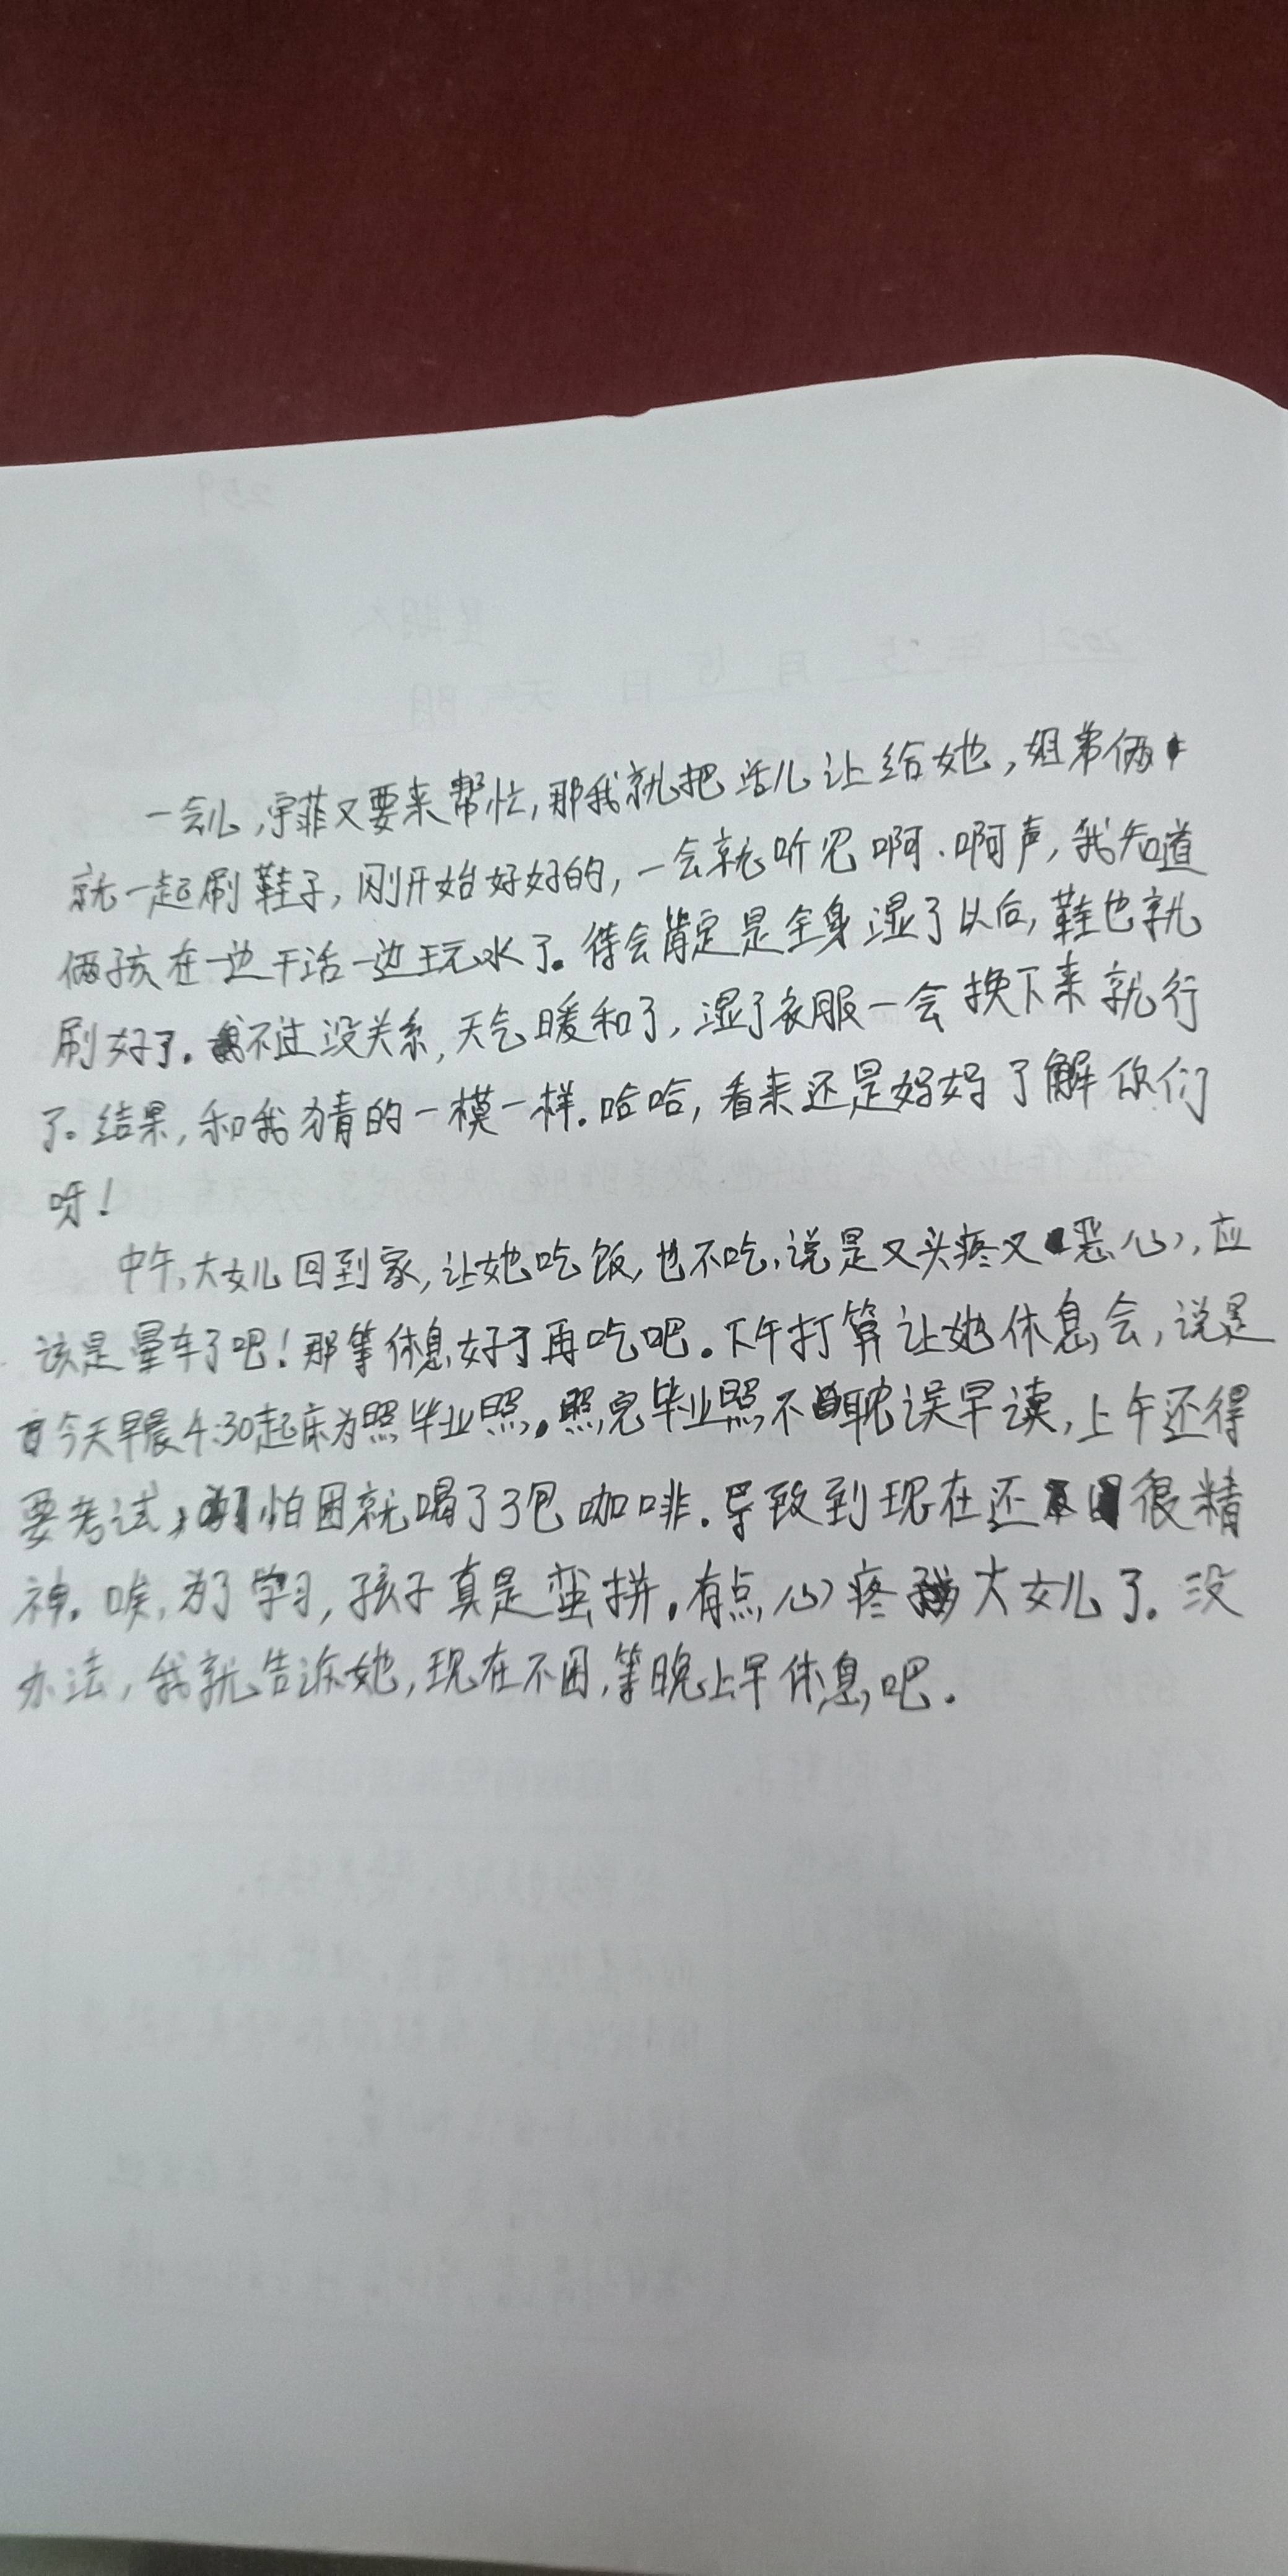 一会儿,宇菲又要来帮忙,那我就把活儿让给她,姐弟俩
就一起刷鞋子,刚开始好好的,一会就听见啊、啊声,我知道
俩孩在一边干活一边玩水了。待会肯定是全身湿了以后,鞋也就
刷好了。不过没关系,天气暖和了,湿了衣服一会换下来就行
了。结果,和我猜的一模一样。哈哈,看来还是妈妈了解你们
呀!
中午,大女儿回到家,让她吃饭,也不吃,说是又头疼又恶心,应
该是晕车了吧!那等休息好了再吃吧。下午打算让她休息会,说是
今天早晨4:30起床为照毕业照。照完毕业照不耽误早读,上午还得
要考试,怕困就喝了3包咖啡.导致到现在还很精
神。唉,为了学习,孩子真是蛮拼。有点心疼大女儿了。没
办法,我就告诉她,现在不困,等晚上早休息吧.